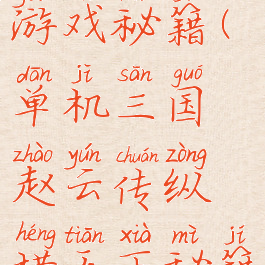 游戏秘籍(
dān jī sān guó
单机三国
zhào yún chuán zòng
赵云传纵
héng tiān xià mì jí
横天下秘籍